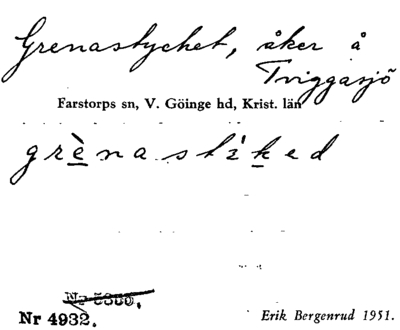 Grenastychet, åker å
Tviggasjö
Farstorps sn, V. Göinge hd, Krist. län
grènastíked
Nr 5360.
Nr 4932.
Erik Bergenrud 1951.